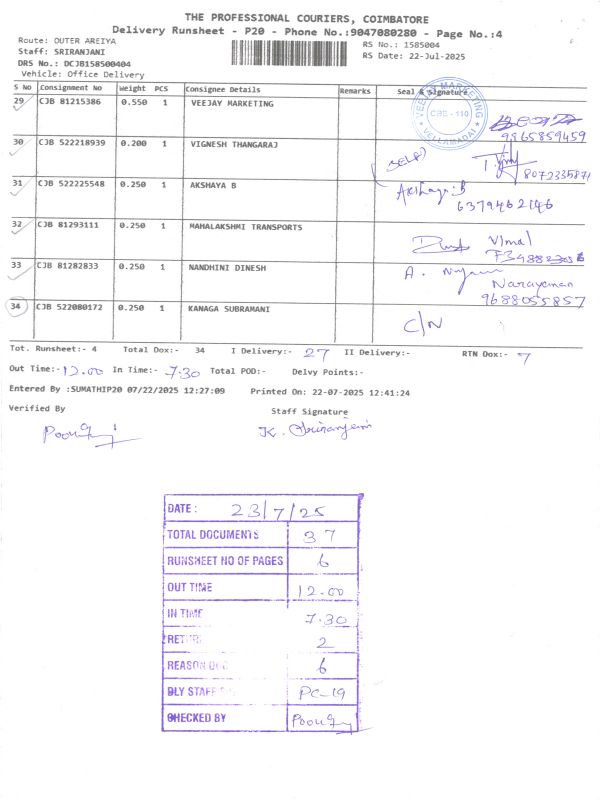 THE PROFESSIONAL COURIERS, COIMBATORE
Delivery Runsheet - P20 - Phone No.:9047080280 - Page No.:4
Route: OUTER AREIYA
RS No.: 1585004
Staff: SRIRANJANI
RS Date: 22-Jul-2025
DRS No.: DCJB158500404
Vehicle: Office Delivery
S No Consignment No Weight PCS Consignee Details Remarks Seal & Signature
29 CJB 81215386 0.550 1 VEEJAY MARKETING
VEEJAY MARKETING CBE - 110 VELLAMADAI
9865859459
30 CJB 522218939 0.200 1 VIGNESH THANGARAJ
(SELF)
8072335871
31 CJB 522225548 0.250 1 AKSHAYA B
Akshaya.B
6379462146
32 CJB 81293111 0.250 1 MAHALAKSHMI TRANSPORTS
Vimal
33 CJB 81282833 0.250 1 NANDHINI DINESH
A.
Narayanan
9688055857
34 CJB 522080172 0.250 1 KANAGA SUBRAMANI
C/N
Tot. Runsheet:- 4 Total Dox:- 34 I Delivery:- 27 II Delivery:- RTN Dox:- 7
Out Time:- 12.00 In Time:- 7.30 Total POD:- Delvy Points:-
Entered By :SUMATHIP20 07/22/2025 12:27:09 Printed On: 22-07-2025 12:41:24
Verified By Staff Signature
K. Sriranjani
DATE : 23/7/25
TOTAL DOCUMENTS 37
RUNSHEET NO OF PAGES 6
OUT TIME 12.00
IN TIME 7.30
RETURN 2
REASON DOC 6
DLY STAFF PC-19
CHECKED BY